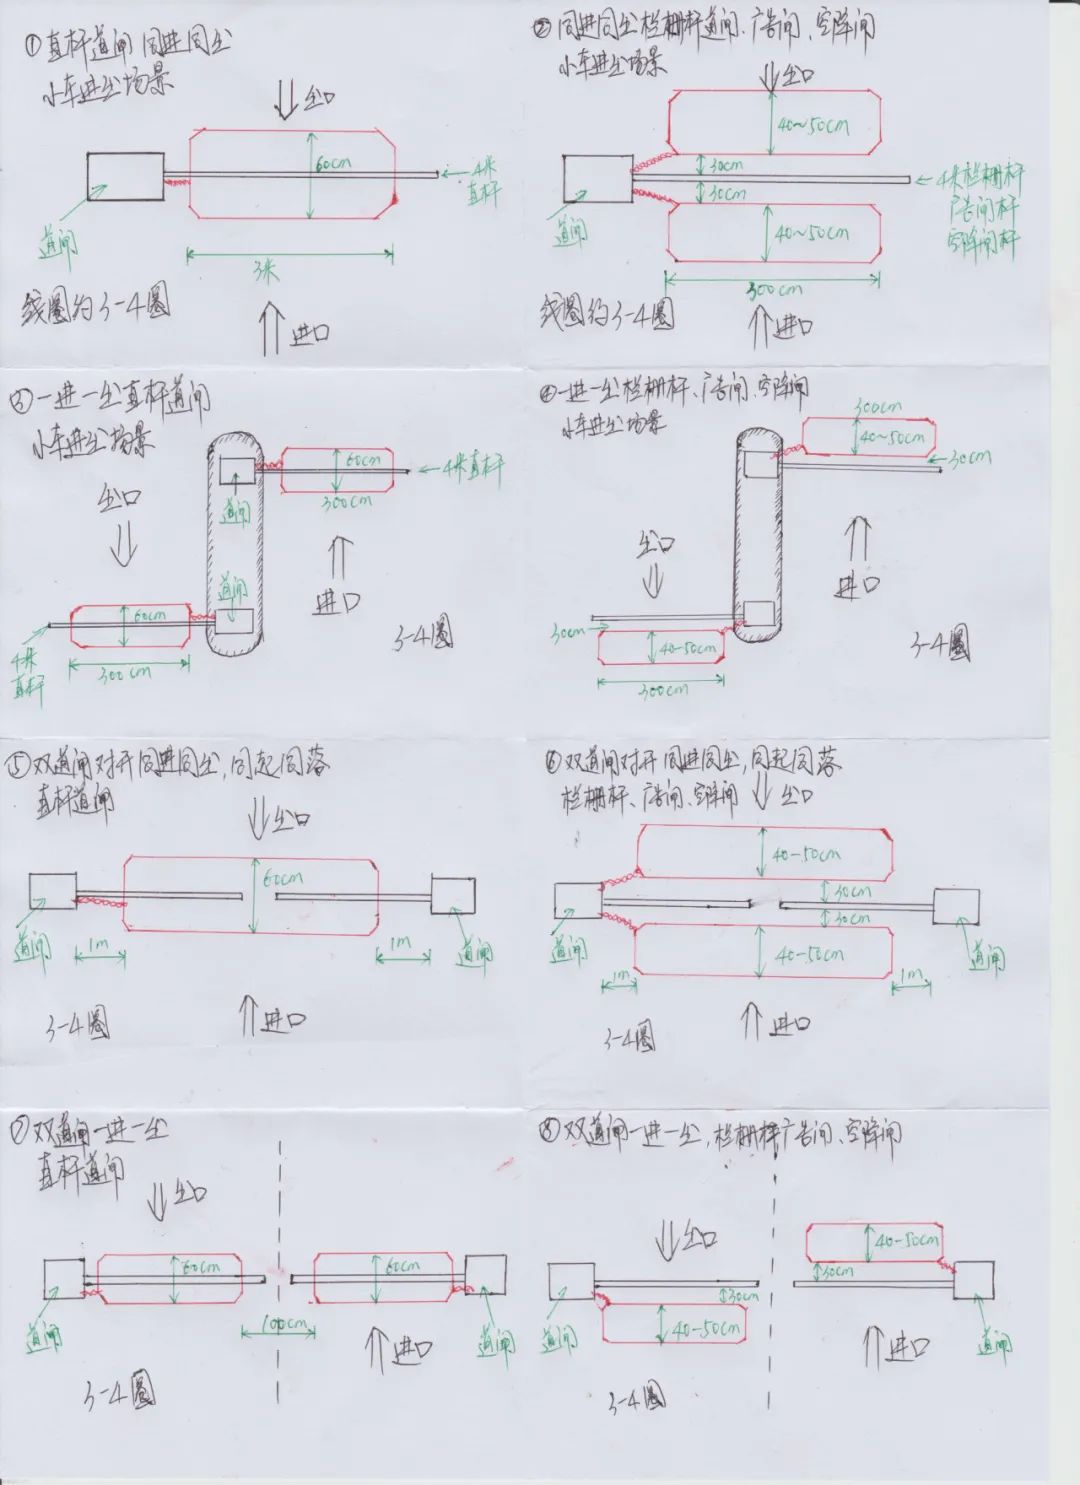 ①直杆道闸 同进同出
小车进出场景
出口
60cm
4米
直杆
道闸
3米
线圈约3-4圈
进口
②同进同出栏栅杆道闸、广告闸、空降闸
小车进出场景
出口
40~50cm
30cm
30cm
4米栏栅杆
广告闸杆
空降闸杆
道闸
40~50cm
300cm
线圈约3-4圈
进口
③一进一出直杆道闸
小车进出场景
60cm
4米直杆
300cm
道闸
出口
进口
道闸
60cm
4米
直杆
300cm
3-4圈
④一进一出栏栅杆、广告闸、空降闸
小车进出场景
300cm
40~50cm
30cm
出口
进口
30cm
40-50cm
300cm
3-4圈
⑤双道闸对开同进同出,同起同落
直杆道闸
出口
60cm
道闸
1m
1m
道闸
3-4圈
进口
⑥双道闸对开同进同出,同起同落
栏栅杆、广告闸、空降闸
出口
40-50cm
30cm
30cm
道闸
40-50cm
道闸
1m
1m
3-4圈
进口
⑦双道闸一进一出
直杆道闸
出口
60cm
60cm
道闸
100cm
道闸
进口
3-4圈
⑧双道闸一进一出,栏栅杆广告闸、空降闸
出口
40-50cm
30cm
30cm
道闸
40-50cm
进口
道闸
3-4圈